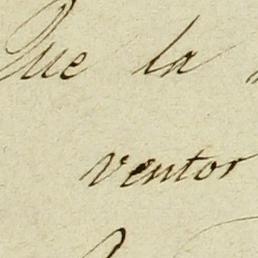 Que la
ventor